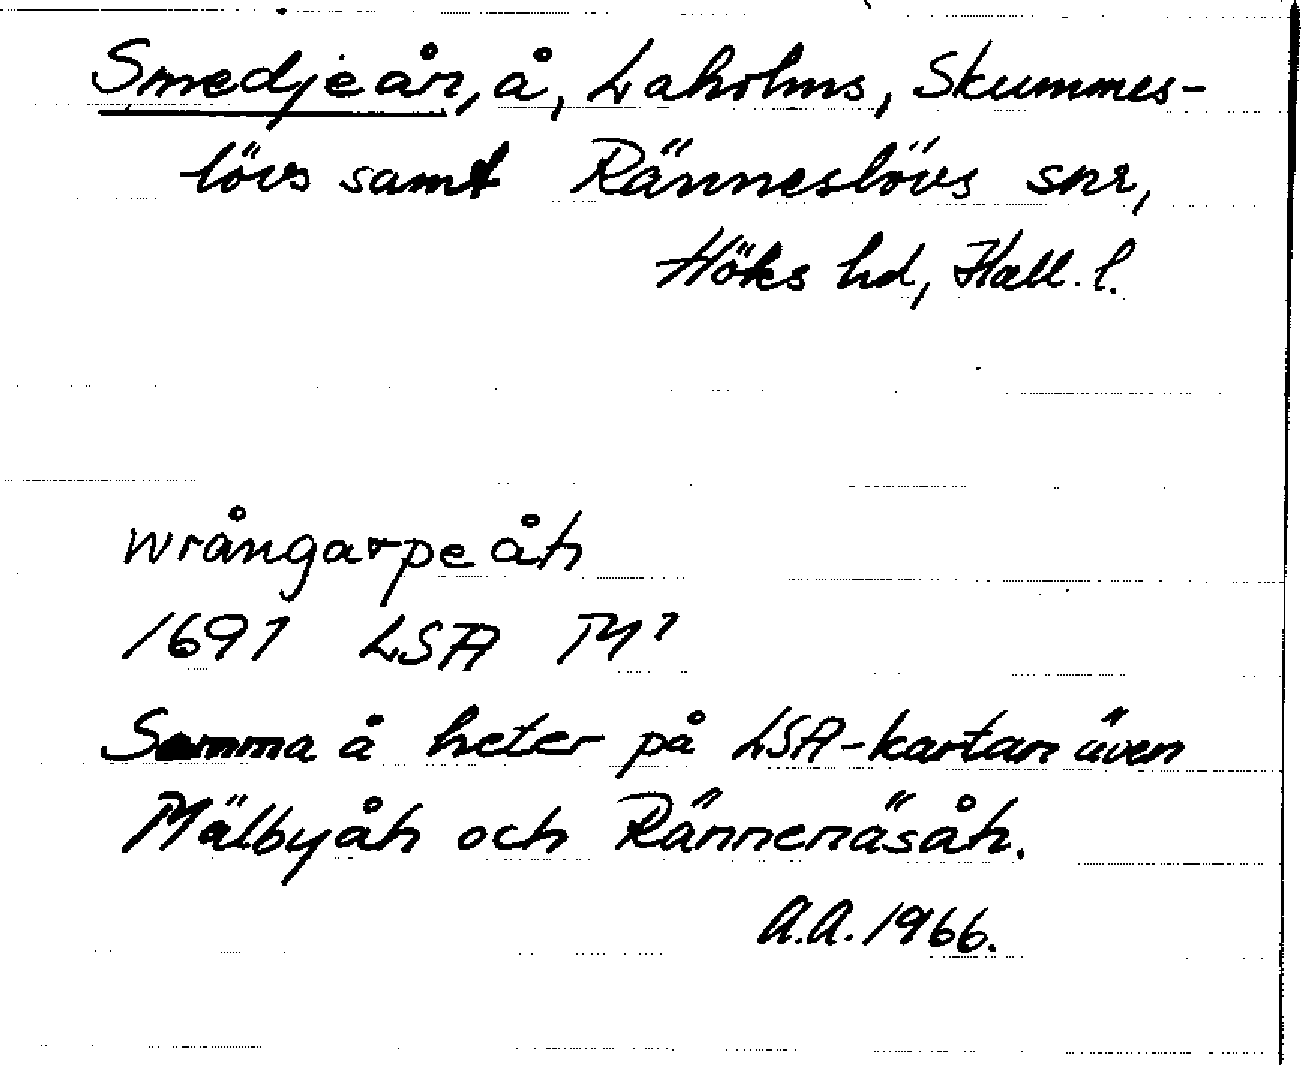 Smedjeån, å, Laholms, Skummes-
lövs samt Ränneslövs snr,
Höks hd, Hall. l.
Wrångarpe åh
1697 LSA M¹
Samma å heter på LSA-kartan även
Mälbyåh och Rännenäsåh.
A.A. 1966.